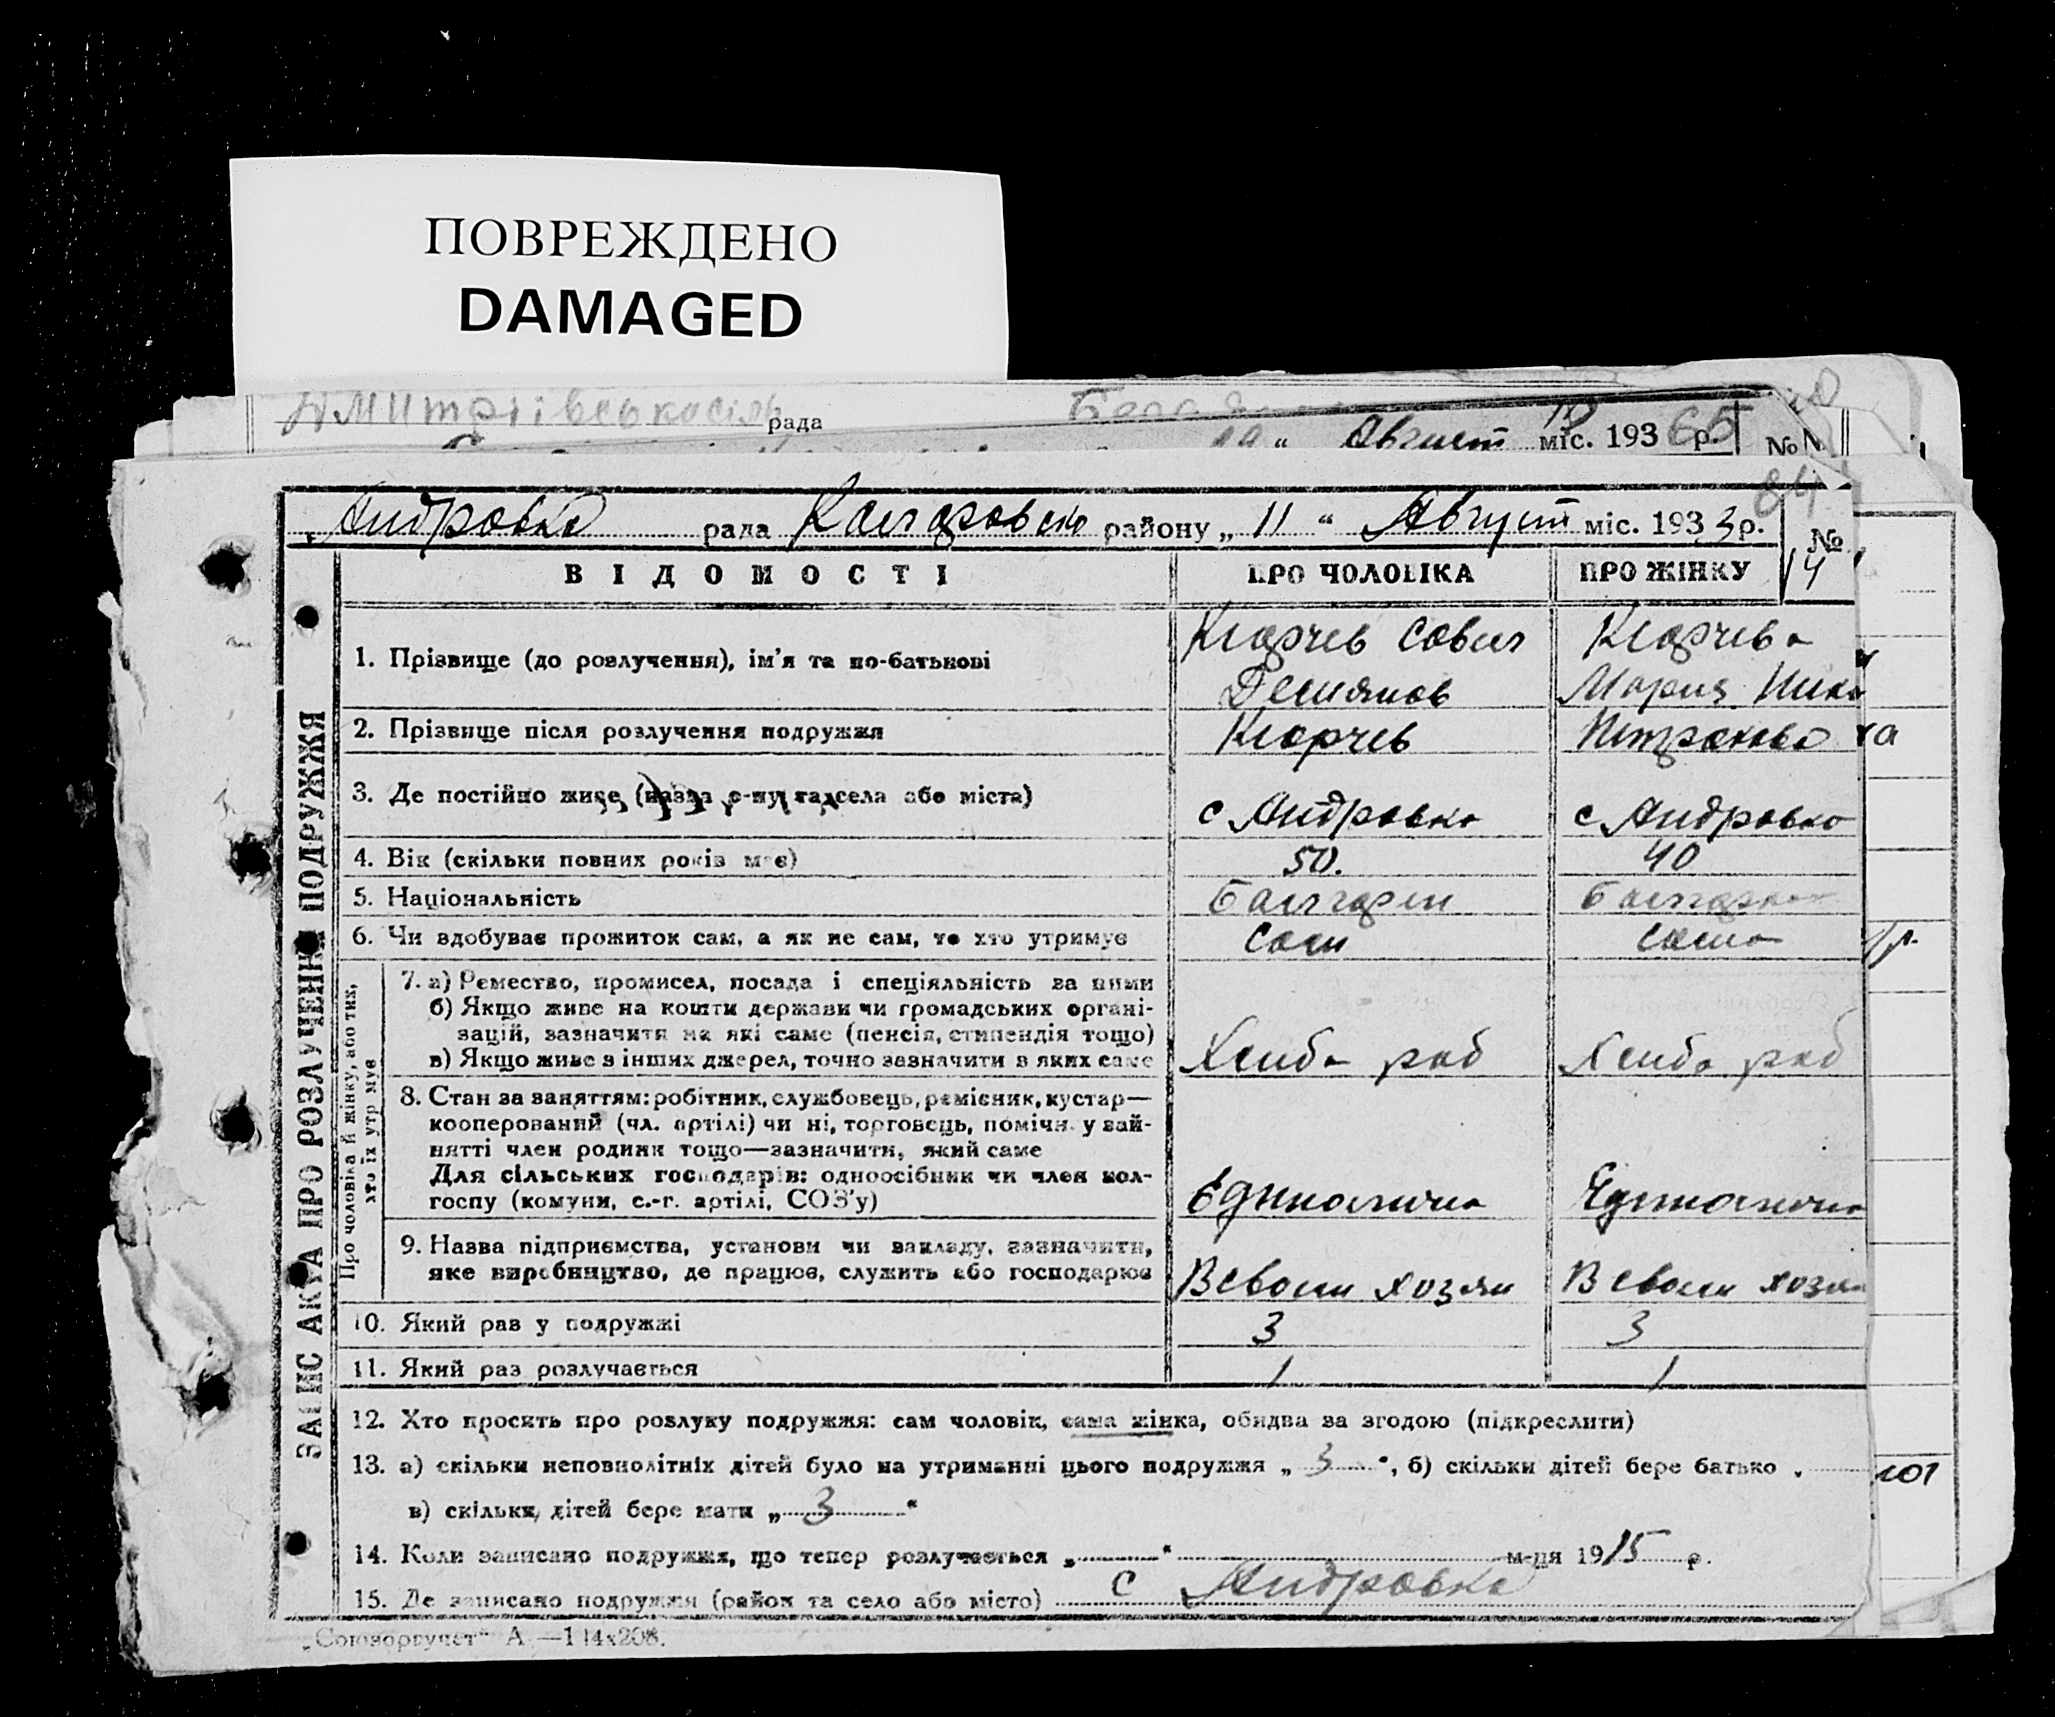 ПОВРЕЖДЕНО
DAMAGED
рада
Август міс. 193 р. №
84
Андровка рада района „ 11 “ Август міс. 1933 р. № 14
ВІДОМОСТІ ПРО ЧОЛОВІКА ПРО ЖІНКУ
ЗАПИС АКТА ПРО РОЗЛУЧЕННЯ ПОДРУЖЖЯ
Кюрчев Савел Кюрчева
1. Прізвище (до розлучення), ім'я та по-батькові
Демянов Мария Ник
2. Прізвище після розлучення подружжя Кюрчев Петракова
3. Де постійно живе (назва р-ну та села або міста) с Андровка с Андровка
4. Вік (скільки повних років має) 50. 40
5. Національність Балгарин Балгарка
6. Чи здобуває прожиток сам, а як не сам, то хто утримує сам сама
Про чоловіка й жінку, або тих, хто їх утримує
7. а) Ремество, промисел, посада і спеціяльність за ними
б) Якщо живе на кошти держави чи громадських органі-
зацій, зазначити на які саме (пенсія, стипендія тощо)
в) Якщо живе з інших джерел, точно зазначити з яких саме Хлиба роб Хлиба роб
8. Стан за заняттям: робітник, службовець, ремісник, кустар—
кооперований (чл. артілі) чи ні, торговець, помічн. у зай-
нятті член родини тощо—зазначити, який саме
Для сільських господарів: одноосібник чи член кол-
госпу (комуни, с.-г. артілі, СОЗ'у) Єдиналична Ядиналична
9. Назва підприємства, установи чи закладу, зазначити,
яке виробництво, де працює, служить або господарює В своим хозяи В своим хозяи
10. Який раз у подружжі 3 3
11. Який раз розлучається 1 1
12. Хто просить про розлуку подружжя: сам чоловік, сама жінка, обидва за згодою (підкреслити)
13. а) скільки неповнолітніх дітей було на утриманні цього подружжя „ 3 “, б) скільки дітей бере батько „
в) скільки дітей бере мати „ 3 “
14. Коли записано подружжя, що тепер розлучається „ “ м-ця 1915 р.
15. Де записано подружжя (район та село або місто) с Андровка
„Союзоргучет“ А —114х208.